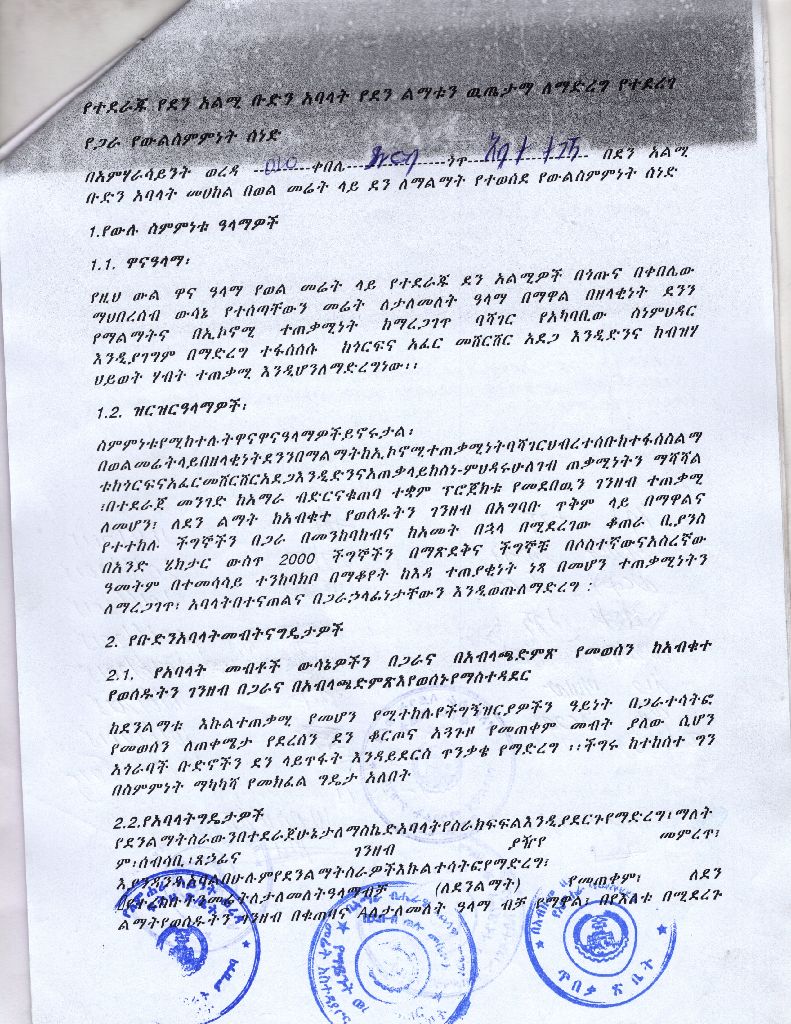 የተደራጁ የደን አልሚ ቡድን አባላት የደን ልማቱን ዉጤታማ ለማድረግ የተደረገ
የጋራ የውልስምምነት ሰነድ
በአምሃራሳይንት ወረዳ 010 ቀበሌ ጎጥ በደን አልሚ
ቡድን አባላት መሀከል በወል መሬት ላይ ደን ለማልማት የተወሰደ የውልስምምነት ሰነድ
1.የውሉ ስምምነቱ ዓላማዎች
1.1. ዋናዓላማ፡
የዚህ ውል ዋና ዓላማ የወል መሬት ላይ የተደራጁ ደን አልሚዎች በጎጡና በቀበሌው
ማህበረሰብ ውሳኔ የተሰጣቸውን መሬት ለታለመለት ዓላማ በማዋል በዘላቂነት ደንን
የማልማትና በኢኮኖሚ ተጠቃሚነት ከማረጋገጥ ባሻገር የአካባቢው ስነምህዳር
እንዲያገግም በማድረግ ተፋሰሰሱ ከጎርፍና አፈር መሸርሸር አደጋ እንዲድንና ከብዝሃ
ህይወት ሃብት ተጠቃሚ እንዲሆንለማድረግነው፡፡
1.2. ዝርዝርዓላማዎች፡
ስምምነቱየሚከተሉትዋናዋናዓላማዎችይኖሩታል፡
በወልመሬትላይበዘላቂነትደንንበማልማትከኢኮኖሚተጠቃሚነትባሻገርህብረተሰቡከተፋሰስልማ
ቱከጎርፍናአፈርመሸርሸርአደጋእንዲድንናአጠቃላይከስነ-ምህዳሩሁለገብ ጠቃሚነትን ማሻሻል
፡በተደራጀ መንገድ ከአማራ ብድርናቁጠባ ተቋም ፕሮጀክቱ የመደበዉን ገንዘብ ተጠቃሚ
ለመሆን፣ ለደን ልማት ከአብቁተ የወሰዱትን ገንዘብ በአግባቡ ጥቅም ላይ በማዋልና
የተተከሉ ችግኞችን በጋራ በመንከባከብና ከአመት በኋላ በሚደረገው ቆጠራ ቢያንስ
በአንድ ሄክታር ውስጥ 2000 ችግኞችን በማጽደቅና ችግኞቹ በሶስተኛውናአስረኛው
ዓመትም በተመሳሳይ ተንከባክቦ በማቆየት ከእዳ ተጠያቂነት ነጻ በመሆን ተጠቃሚነትን
ለማረጋገጥ፣ አባላትበተናጠልና በጋራኃላፊነታቸውን እንዲወጡለማድረግ ፡
2. የቡድንአባላትመብትናግዴታዎች
2.1. የአባላት መብቶች ውሳኔዎችን በጋራና በአብላጫድምጽ የመወሰን ከአብቁተ
የወሰዱትን ገንዘብ በጋራና በአብላጫድምጽእየወሰኑየማስተዳደር
ከደንልማቱ እኩልተጠቃሚ የመሆን የሚተከሉየችግኝዝርያዎችን ዓይነት በጋራተሳትፎ
የመወሰን ለጠቀሜታ የደረሰን ደን ቆርጦና አጓጉዞ የመጠቀም መብት ያለው ሲሆን
አጎራባች ቡድኖችን ደን ላይጥፋት እንዳይደርስ ጥንቃቄ የማድረግ ፡፡ችግሩ ከተከሰተ ግን
በስምምነት ማካካሻ የመክፈል ግዴታ አለበት
2.2.የአባላትግዴታዎች
የደንልማትስራውንበተደራጀሁኔታለማስኬድአባላትየስራክፍፍልእንዲያደርጉየማድረግ፣ማለት
ም፡ሰብሳቢ፣ጸኃፊና ገንዘብ ያዥየ መምረጥ፣
እያንዳንዱአባልበሁሉምየደንልማትስራዎችእኩልተሳትፎየማድረግ፣
(ለደንልማት) የመጠቀም፣ ለደን
ልማትየወሰዱትን ገንዘብ በቁጠባና Aለታለመለት ዓላማ ብቻ የማዋል፣ በየእለቱ በሚደረጉ
ጥበቃ ጽ ቤት